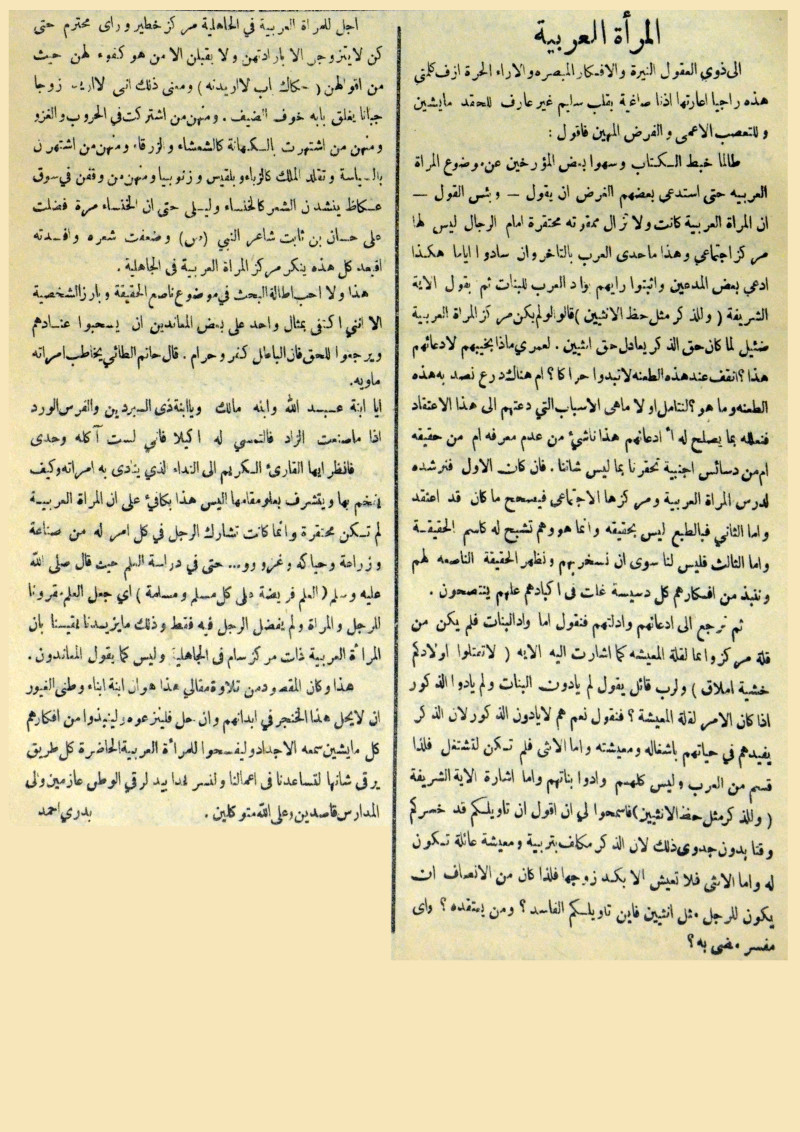 المرأة العربية
الى ذوي العقول النيرة والافكار المبصره والاراء الحرة ازف كلمتي
هذه راجيا اعارتها اذنا صاغية بقلب سليم غير عارف للحقد مايشين
وللتعصب الاعمى والغرض المهين فاقول :
طالما خبط الكتاب وسهوا بعض المؤرخين عن موضوع المراة
العربيه حتى استدعى بعضهم الغرض ان يقول — وبئس القول —
ان المراة العربية كانت ولا تزال ممقوته محتقرة امام الرجال ليس لها
مركز اجتماعي وهذا ماحدى العرب بالتاخر وان سادوا اياما هكذا
ادعي بعض المدعين واثبتوا رايهم بواد العرب للبنات ثم بقول الاية
الشريفة ( وللذكر مثل حظ الانثيين ) قالوا لو لم يكن مركز المراة العربية
ضئيل لما كان حق الذكر يعادل حق انثيين . لعمري ماذا يخيبهم لادعائهم
هذا ؟ انقف عند هذه الطعنه لا تبدوا حراكا ؟ ام هناك درع نصد به هذه
الطعنه وما هو ؟ لنتامل اولا ماهى الاسباب التي دعتهم الى هذا الاعتقاد
فنعلله بما يصلح له أ ادعائهم هذا ناشئ من عدم معرفه ام من حقيقه
ام من دسائس اجنبية تحقرنا بما ليس شاننا . فان كان الاول فنرشده
لدرس المراة العربية ومركزها الاجتماعى فيصحح ما كان قد اعتقد
واما الثاني فبالطبع ليس بحقيقه وانما هو وهم تشبح له كاسم الحقيقة
واما الثالث فليس لنا سوى ان نسخر بهم ونظهر الحقيقة الناصعه لهم
وننبذ من افكارهم كل دسيسة غات فى اكبادهم علهم ينتصحون .
ثم نرجع الى ادعائهم وادلتهم فنقول اما واد البنات فلم يكن من
قلة مركز وانما لقلة المعيشه كما اشارت اليه الايه ( لا تقتلوا اولادكم
خشية املاق ) ولرب قائل يقول لم يادون البنات ولم يادوا الذكور
اذا كان الامر لقلة المعيشة ؟ فنقول نعم هم لا يادون الذكور لان الذكر
يفيدهم في حياتهم باشغاله ومعيشته واما الانثى فلم تكن لتشتغل فلذا
قسم من العرب وليس كلهم وادوا بناتهم واما اشارة الاية الشريفة
( وللذكر مثل حظ الانثيين ) فاسمحوا لي ان اقول ان تاويلكم قد خسركم
وقتا بدون جدوى ذلك لان الذكر مكلف بتربية ومعيشة عائلة تكون
له واما الانثى فلا تعيش الا بكد زوجها فلذا كان من الانصاف ان
يكون للرجل مثل انثيين فاين تاويلكم الفاسد ؟ ومن يعتقده ؟ واى
مفسر مضى به ؟
اجل للمراة العربية في الجاهلية مركز خطير وراى محترم حتى
كن لا يتزوجن الا بارادتهن ولا يقبلن الا من هو كفوء لهن حيث
من اقوالهن ( اب لااريدنه ) ومعنى ذلك انى لااريد زوجا
جبانا يغلق بابه خوف الضيف . ومنهن من اشتركت في الحروب والغزو
ومنهن من اشتهرت بالكهانة كالشعشاء والزرقاء ومنهن من اشتهرن
بالسياسة وتقلد الملك كالزباء وبلقيس وزنوبيا ومنهن من وقفن في سوق
عكاظ ينشدن الشعر كالخنساء وليلى حتى ان الخنساء مرة فضلت
على حسان بن ثابت شاعر النبي (ص) وضعفت شعره وافسدته
افبعد كل هذه ينكر مركز المراة العربية فى الجاهلية .
هذا ولا احب اطالة البحث في موضوع ناصع الحقيقة وبارز الشخصية
الا اننى اكتفى بمثال واحد على بعض المعاندين ان يسحبوا عنادهم
ويرجعوا للحق فان الباطل كفر وحرام . قال حاتم الطائي يخاطب امراته
ماويه .
ايا ابنة عبد الله وابنه مالك ويا ابنة ذى البردين والفرس الورد
اذا ماصنعت الزاد فالتمسي له اكيلا فاني لست آكله وحدى
فانظر ايها القارئ الكريم الى النداء الذي ينادى به امراته وكيف
يفخم بها ويتشرف بعلو مقامها اليس هذا بكافئ على ان المراة العربية
لم تكن محتقرة وانما كانت تشارك الرجل في كل امر له من صناعة
وزراعة وحياكه وغزو و... حتى في دراسة العلم حيث قال صلى الله
عليه وسلم ( العلم فريضة على كل مسلم ومسلمة ) اي جعل العلم مقرونا
للرجل والمراة ولم يفضل الرجل فيه فقط وذلك مايزيدنا يقينا بان
المرأة العربية ذات مركز سام فى الجاهلية وليس كما يقول المعاندون .
هذا وكان المقصود من تلاوة مقالي هذا هو ان ابنة ابناء وطنى الغيور
ان لا يحل هذا الخنجر في ابدانهم وان حل فلينزعوه ولينبذوا من افكارهم
كل مايشين سمعه الاجداد وليفسحوا للمرأة العربية الحاضرة كل طريق
يرقى شانها لتساعدنا فى اعمالنا ولنسر يدا بيد لرقي الوطن عازمين والى
المدارس قاصدين وعلى الله متوكلين . بدري احمد